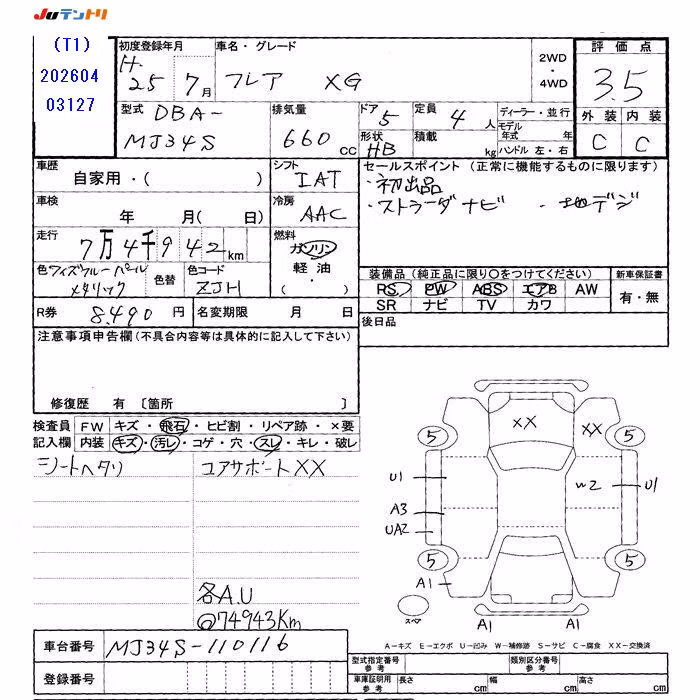 Juテントリ
(T1)
202604
03127
初度登録年月
H.
25 7月
車名・グレード
フレア XG
2WD
・
4WD
評価点
3.5
外装 内装
C C
型式 DBA-
MJ34S
排気量
660 CC
ドア 5
形状 HB
定員 4 人
積載 kg
ディーラー・並行
モデル年式 年
ハンドル 左・右
車歴
自家用・( )
シフト
IAT
セールスポイント (正常に機能するものに限ります)
・初出品
・ストラーダナビ ・地デジ
車検
年 月( 日)
冷房
AAC
走行
7万4千942km
燃料
ガソリン
軽油
・( )
色 ワイズブルーパール
メタリック
色替
色コード
ZJH
装備品 (純正品に限り○をつけてください)
RS PW ABS エアB AW
SR ナビ TV カワ
新車保証書
有・無
R券 8,490 円
名変期限 月 日
後日品
注意事項申告欄(不具合内容等は具体的に記入して下さい)
修復歴 有 〔箇所 〕
検査員 FW キズ・飛石・ヒビ割・リペア跡・×要
記入欄 内装 キズ・汚レ・コゲ・穴・スレ・キレ・破レ
シートヘタリ
コアサポートXX
各A.U
@74943Km
XX
XX
5
5
U1
W2
U1
A3
UA2
5
5
A1
スペア
A1
A1
A-キズ E-エクボ U-凹み W-補修跡 S-サビ C-腐食 XX-交換済
車台番号 MJ34S-110116
登録番号
型式指定番号
参考
類別区分番号
参考
車庫証明用
参考
長さ cm
幅 cm
高さ cm